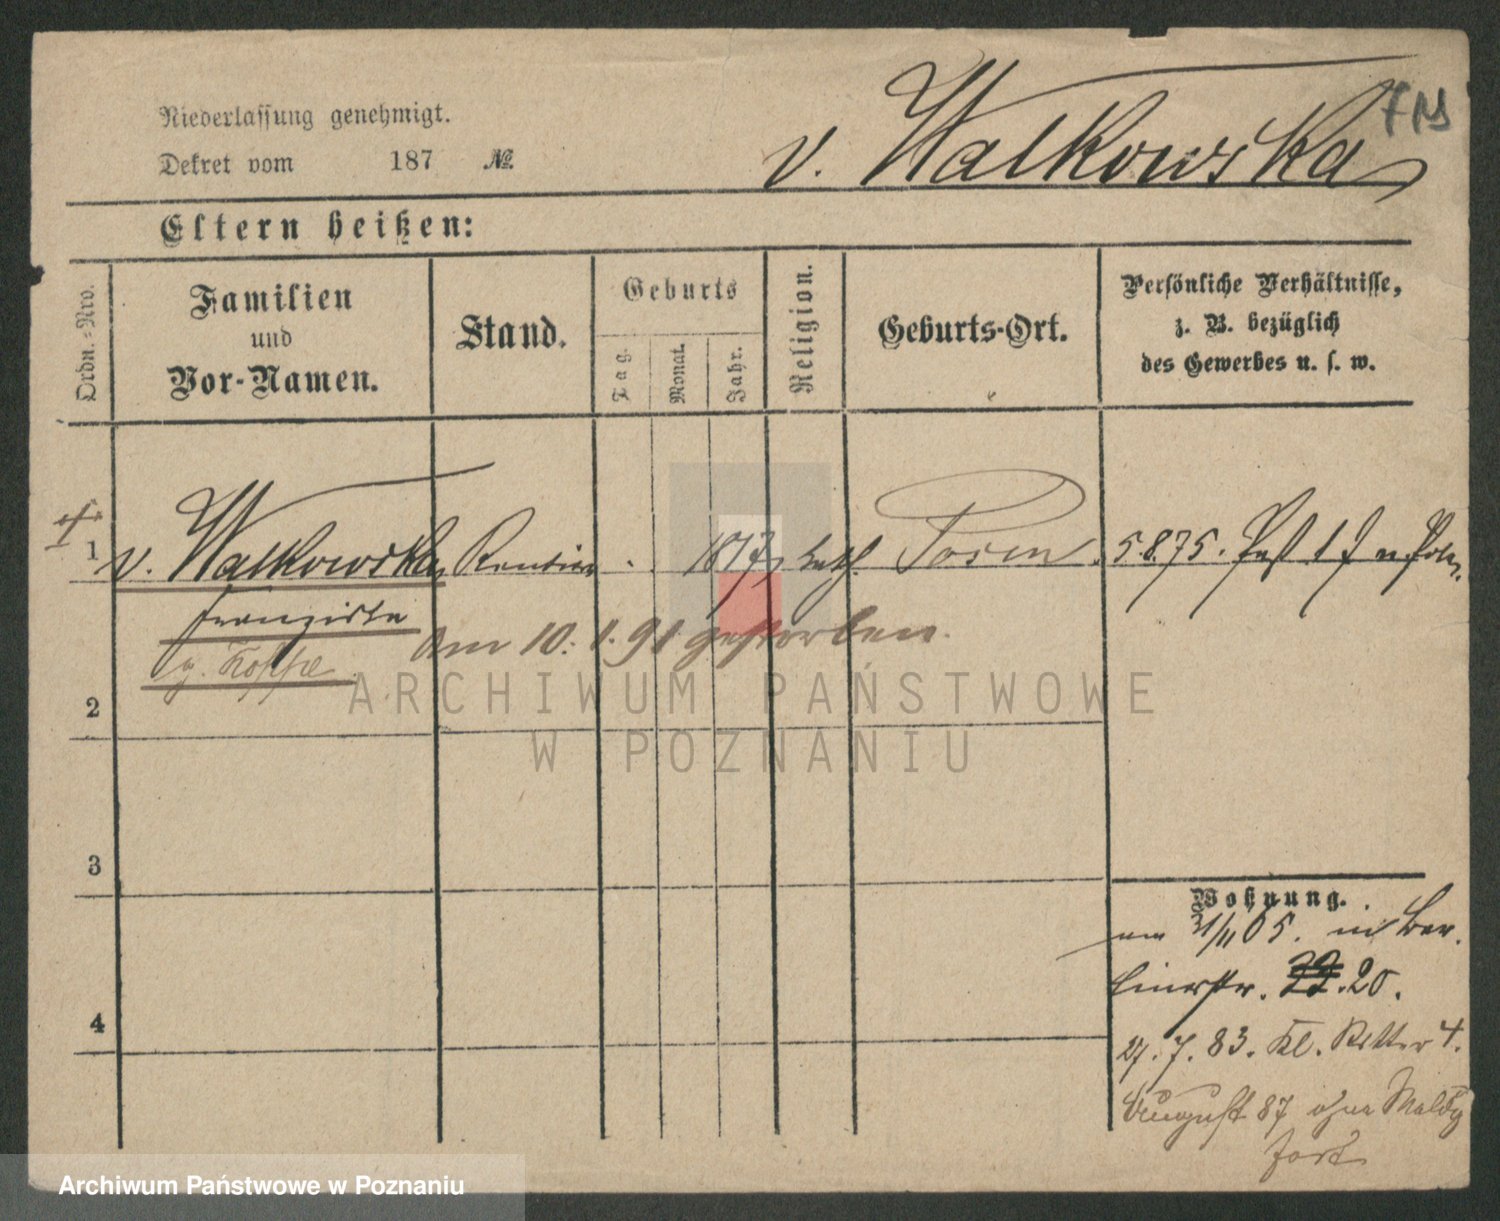 Niederlassung genehmigt.
Dekret vom 187 №
v. Walkowska
Eltern heißen:
Ordn.=Nro.
Familien
und
Vor-Namen.
Stand.
Geburts
Tag.
Monat.
Jahr.
Religion.
Geburts-Ort.
Persönliche Verhältnisse,
z. B. bezüglich
des Gewerbes u. s. w.
1 v. Walkowska Rentier 1817 kath. Posen 5.8.75.
Franziska
Am 10. 1. 91 gestorben.
2
3
4
Wohnung.
in Ber-
linerstr. 22. 20.
27. 7. 83. Kl. Ritter 4.
August 87 ohne Meldg
fort
ARCHIWUM PAŃSTWOWE
W POZNANIU
Archiwum Państwowe w Poznaniu